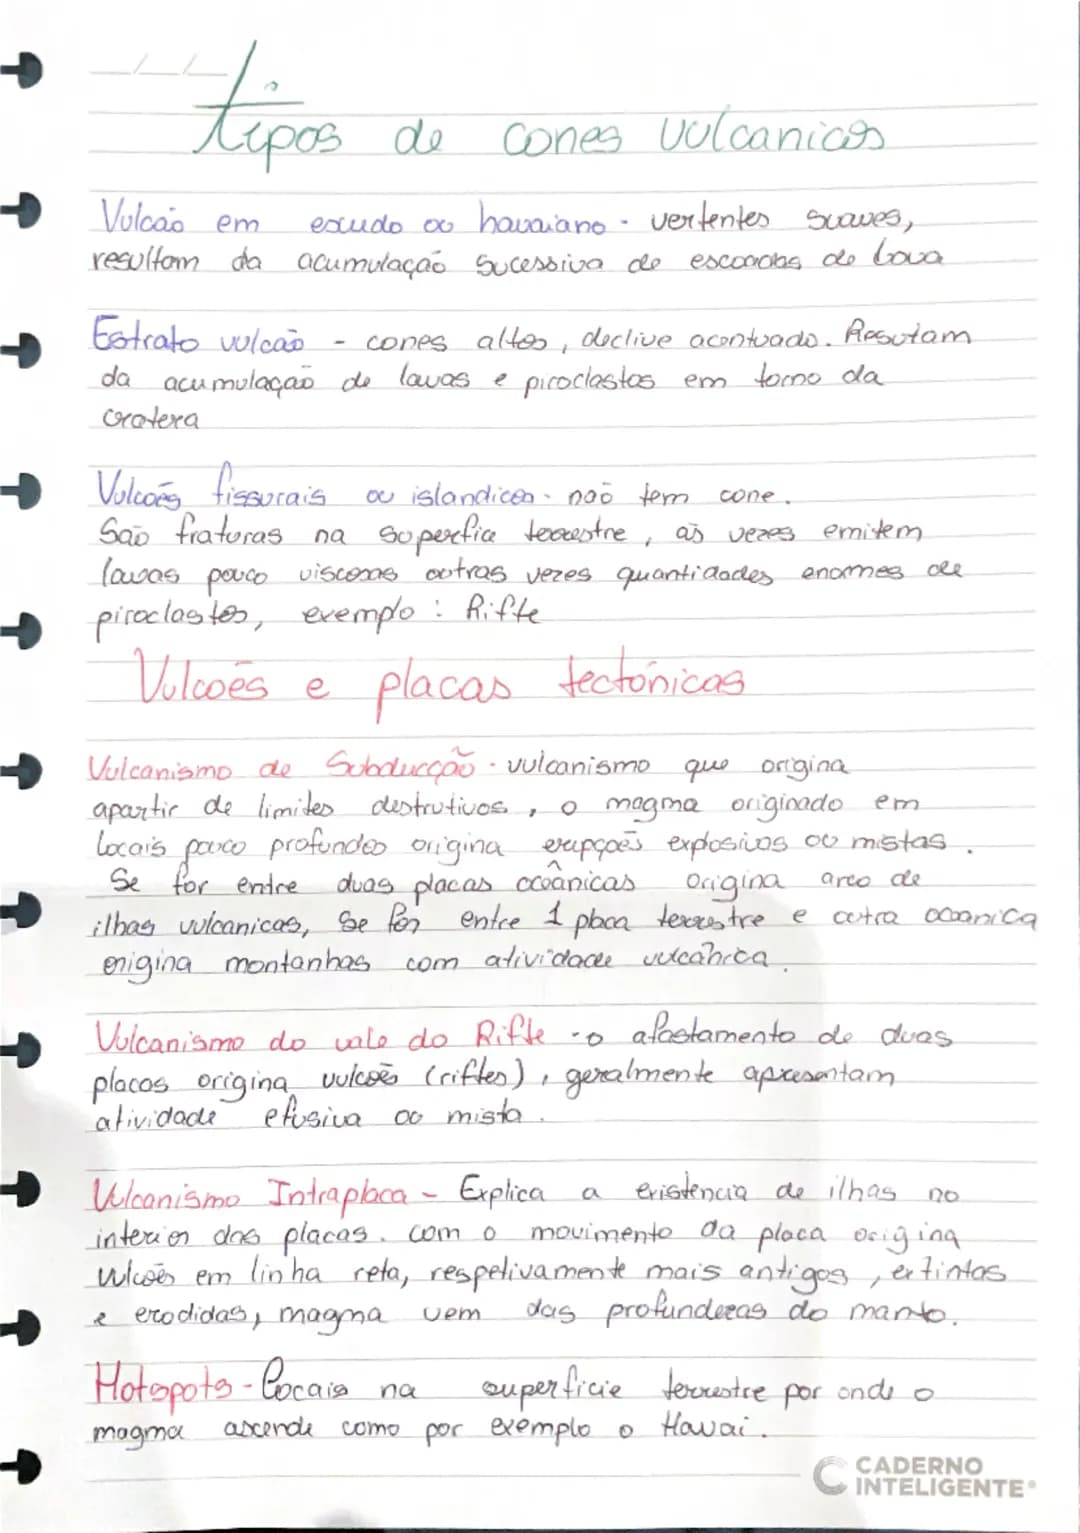 tipos de cones vulcanicos
Vulcão em escudo ou havaiano - vertentes suaves,
resultam da acumulação sucessiva de escoadas de lava
Estrato vulcão - cones altos, declive acentuado. Resutam
da acumulação de lavas e piroclastos em torno da
cratera
Vulcoẽs fissurais ou islandicos - não tem cone.
São fraturas na superfice terrestre, as vezes emitem
lavas pouco viscosas outras vezes quantidades enormes de
piroclastos, exemplo: Rifte
Vulcoẽs e placas tectónicas
Vulcanismo de Subducção - vulcanismo que origina
apartir de limites destrutivos, o magma originado em
locais pouco profundos origina erupçoẽs explosivas ou mistas.
Se for entre duas placas oceânicas origina arco de
ilhas vulcanicas, se for entre 1 placa terrestre e outra oceanica
origina montanhas com atividade vulcânica.
Vulcanismo do vale do Rifte - o afastamento de duas
placas origina vulcoẽs (riftes), geralmente apresentam
atividade efusiva ou mista.
Vulcanismo Intraplaca - Explica a existência de ilhas no
interior das placas. com o movimento da placa origina
vulcoẽs em linha reta, respetivamente mais antigos, extintas
e erodidas, magma vem das profundezas do manto.
Hotspots - Locais na superficie terrestre por onde o
magma ascende como por exemplo o Havai.
CADERNO
INTELIGENTE®